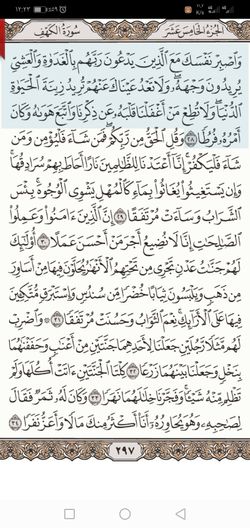 ١٢:٢٢
الجزء الخامس عشر
سورة الكهف
واصبر نفسك مع الذين يدعون ربهم بالغدوة والعشي
يريدون وجهه ولا تعد عيناك عنهم تريد زينة الحيوة
الدنيا ولا تطع من أغفلنا قلبه عن ذكرنا واتبع هوىه وكان
أمره فرطا ٢٨ وقل الحق من ربكم فمن شاء فليؤمن ومن
شاء فليكفر إنا أعتدنا للظالمين نارا أحاط بهم سرادقها
وإن يستغيثوا يغاثوا بماء كالمهل يشوي الوجوه بئس
الشراب وساءت مرتفقا ٢٩ إن الذين ءامنوا وعملوا
الصالحات إنا لا نضيع أجر من أحسن عملا ٣٠ أولئك
لهم جنات عدن تجري من تحتهم الأنهار يحلون فيها من أساور
من ذهب ويلبسون ثيابا خضرا من سندس وإستبرق متكئين
فيها على الأرائك نعم الثواب وحسنت مرتفقا ٣١ واضرب
لهم مثلا رجلين جعلنا لأحدهما جنتين من أعناب وحففناهما
بنخل وجعلنا بينهما زرعا ٣٢ كلتا الجنتين ءاتت أكلها ولم
تظلم منه شيئا وفجرنا خلالهما نهرا ٣٣ وكان له ثمر فقال
لصاحبه وهو يحاوره أنا أكثر منك مالا وأعز نفرا ٣٤
٢٩٧